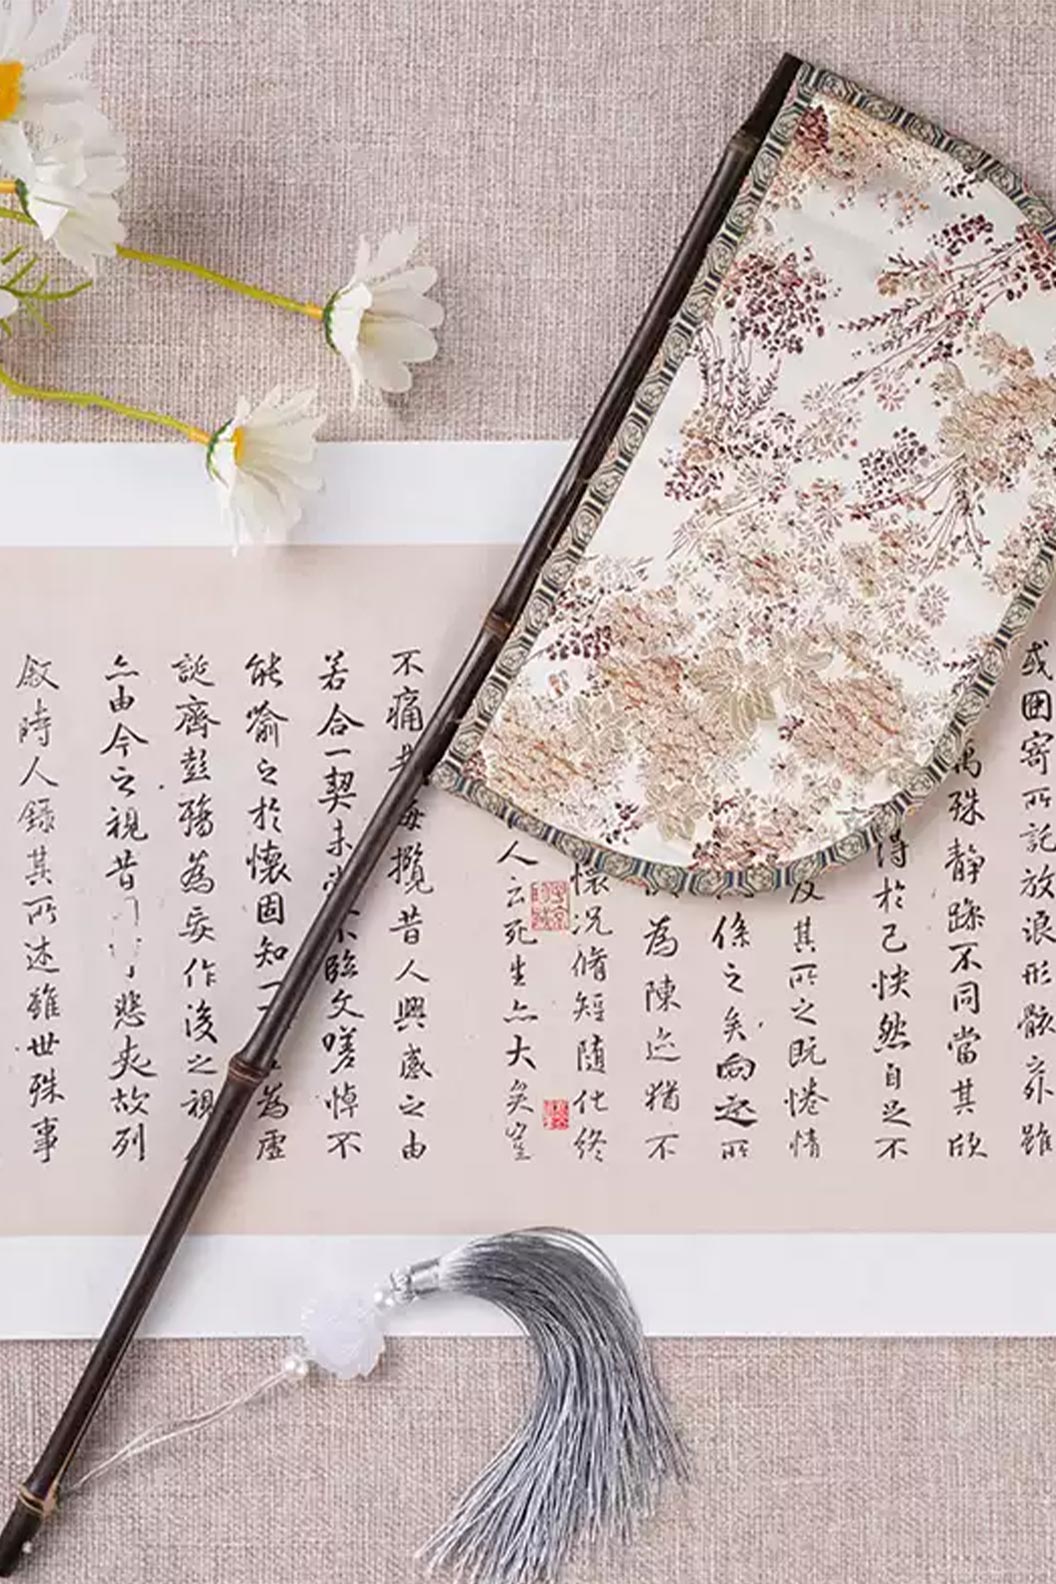 或因寄所託放浪形骸之外雖
萬殊静躁不同當其欣
得於己快然自足不
及其所之既惓情
係之矣向之所
為陳迹猶不
懷况脩短随化終
人云死生亦大矣豈
不痛 每攬昔人興感之由
若合一契未 不臨文嗟悼不
能喻之於懷固知一 為虚
誕齊彭殤為妄作後之視
亦由今之視昔 悲夫故列
叙時人録其所述雖世殊事